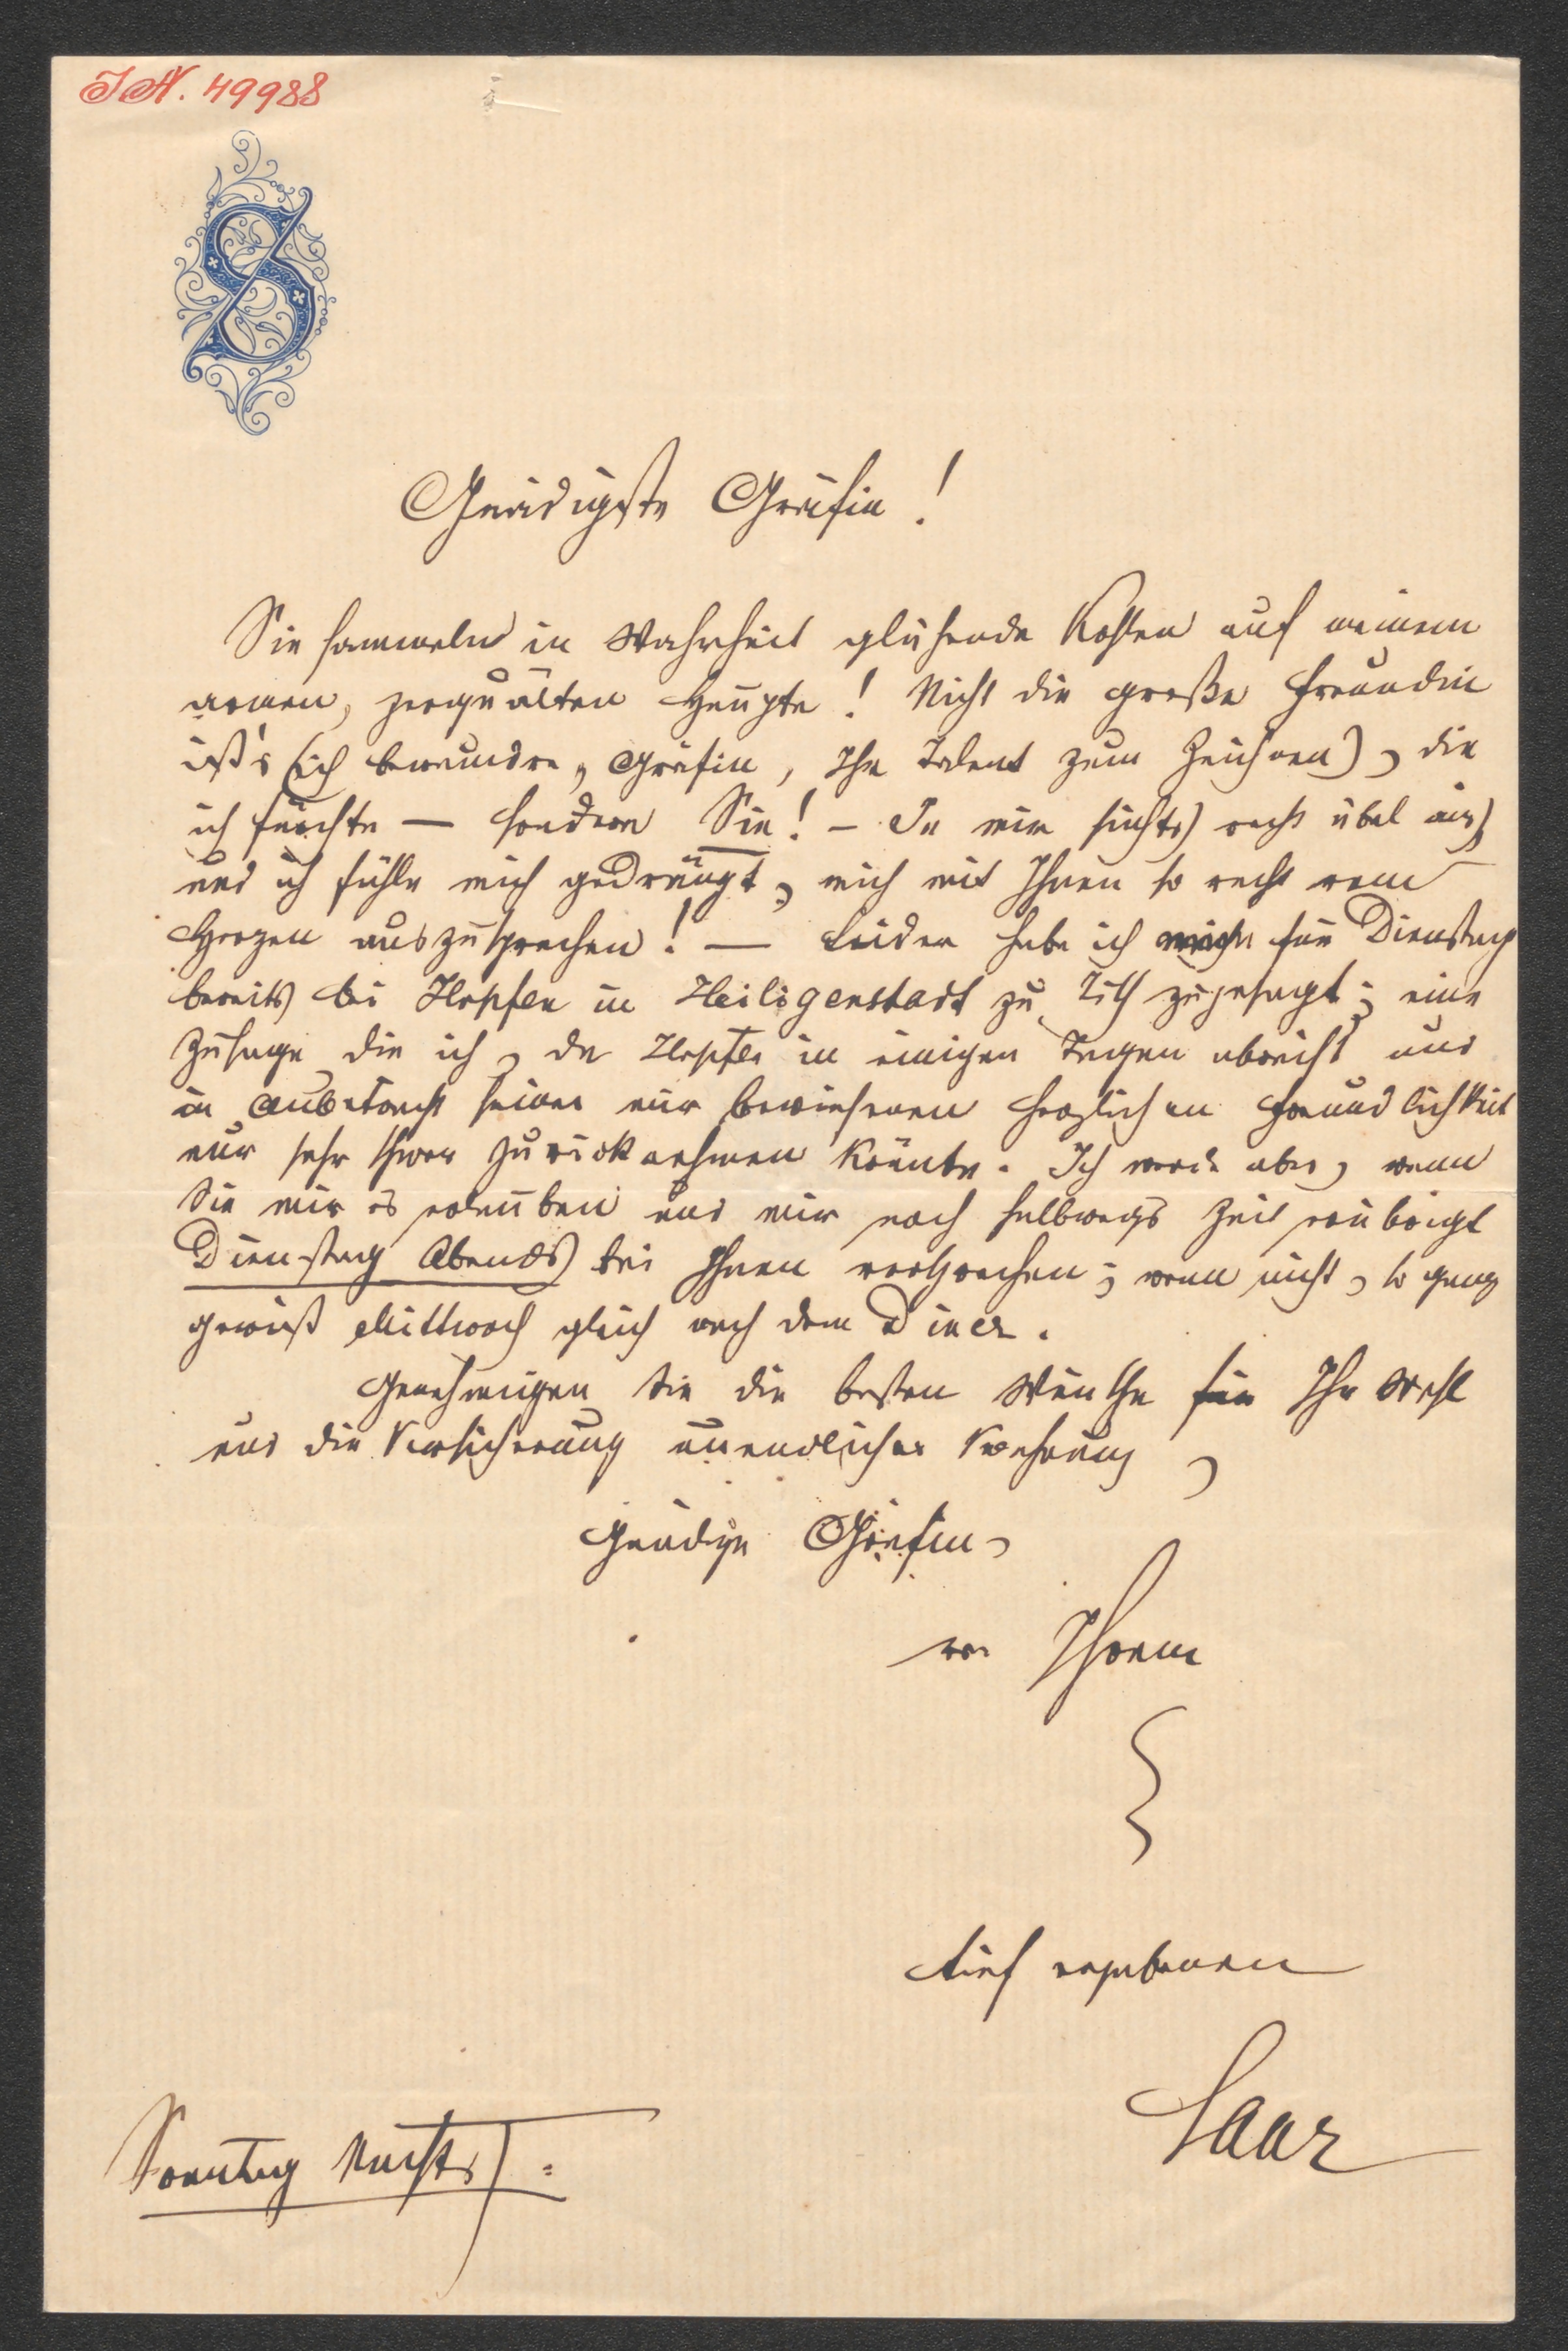 J.N. 49988
S
Gnädigste Gräfin!
Sie sammeln in Wahrheit glühende Kohlen auf meinem
armen, zerquälten Haupte! Nicht die große Freundin
ist's (ich bewundre, Gräfin, Ihr Talent zum Zeichnen), die
ich fürchte — sondern Sie! — In mir sieht's recht übel aus,
und ich fühle mich gedrängt, mich mit Ihnen so recht vom
Herzen auszusprechen! — Leider habe ich mich für Dienstag
bereits bei Hopfen in Heiligenstadt zu Tisch zugesagt; eine
Zusage, die ich, da Hopfen in einigen Tagen abreist und
in Anbetracht seiner mir bewiesenen herzlichen Freundlichkeit
nur sehr schwer zurücknehmen könnte. Ich werde aber, wenn
Sie mir es erlauben und mir noch halbwegs Zeit erübrigt
Dienstag Abends bei Ihnen vorsprechen; wenn nicht, so ganz
gewiß Mittwoch gleich nach dem Diner.
Genehmigen Sie die besten Wünsche für Ihr Wohl
und die Versicherung unendlicher Verehrung,
Gnädige Gräfin,
von Ihrem
tief ergebenen
Saar
Sonntag Nachts.